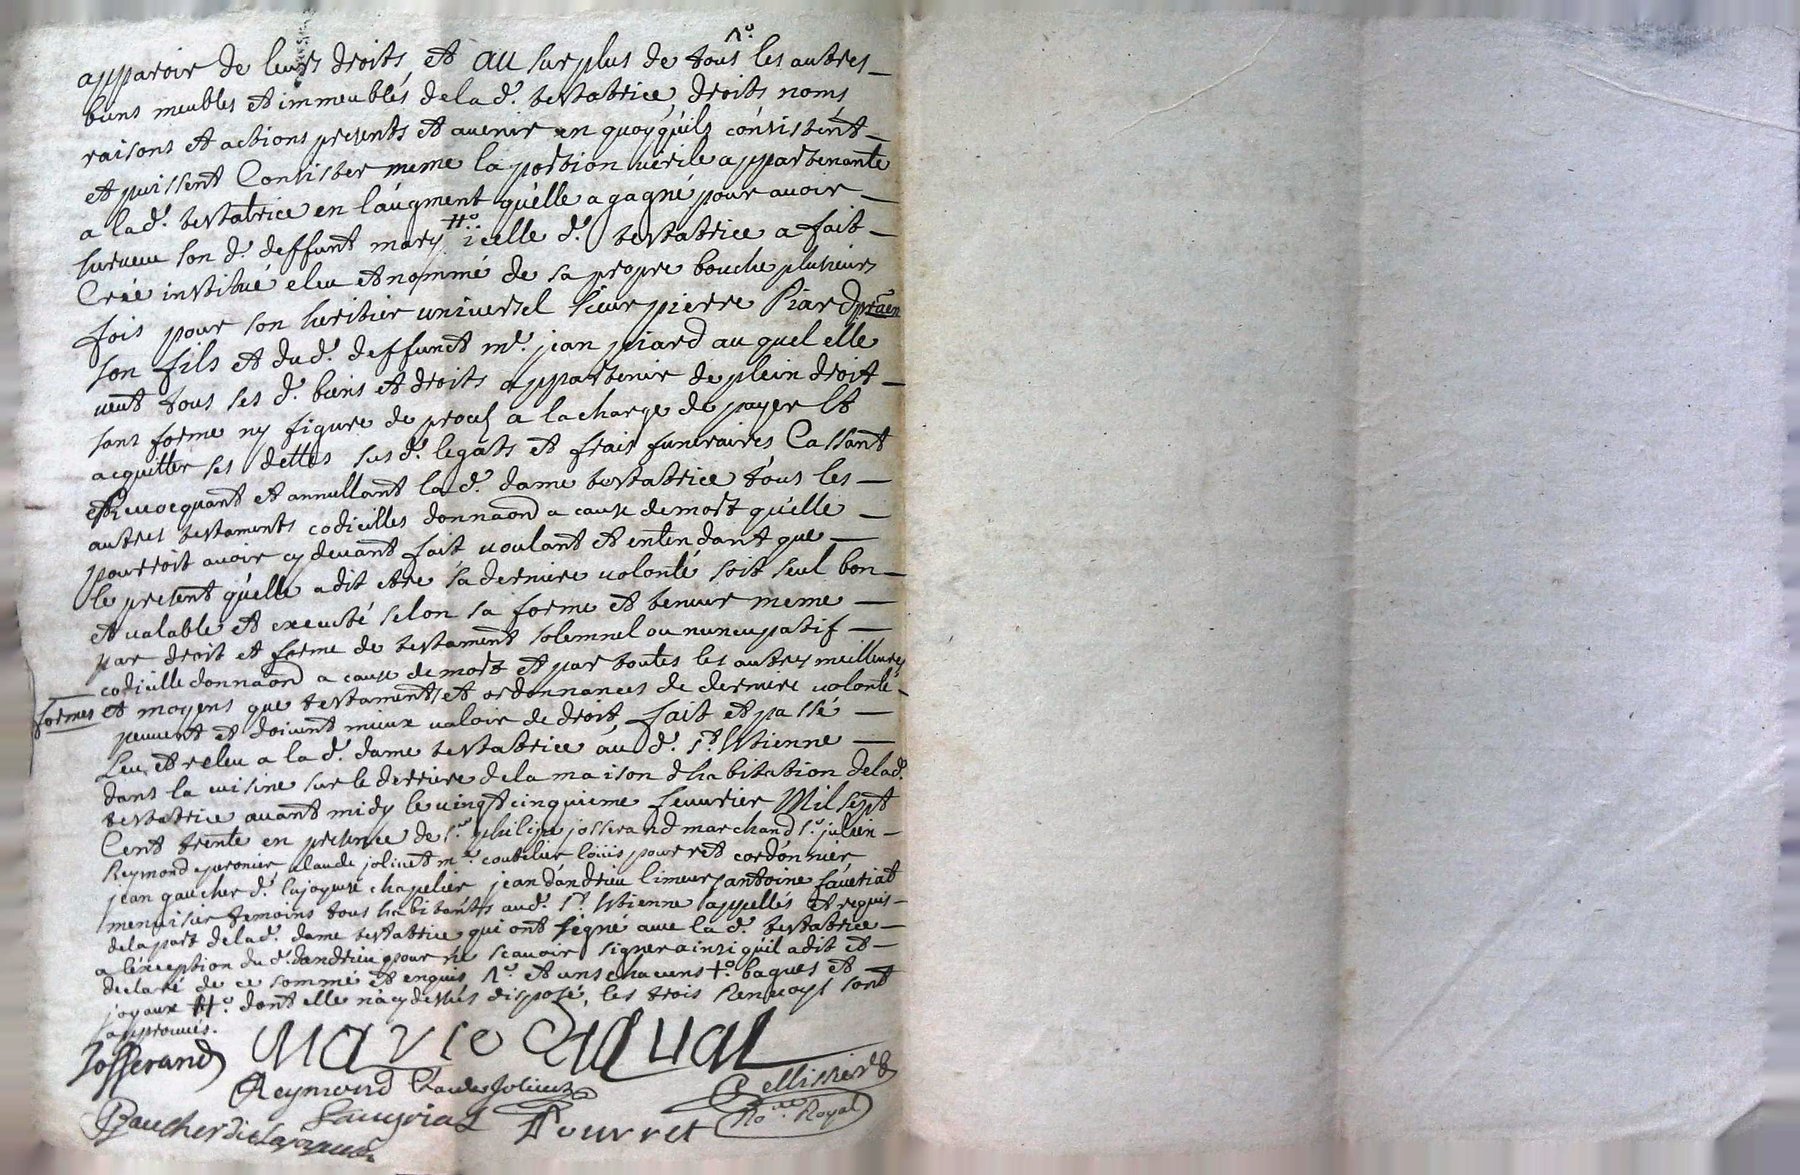 apparoir de leurs droits et au surplus de tous 1.° les autres
biens meubles et immeubles de la d.e testatrice, droits noms
raisons et actions presents et avenir en quoy qu'ils consistent
et puissent Consister meme la portion virile appartenante
a la d.e testatrice en l'augment qu'elle a gagné pour avoir
survecu son d. deffunt mary #.° icelle d.e testatrice a fait
Créé institué eleu et nommé de sa propre bouche plusieurs
fois pour son heritier universel sieur pierre Piard
son fils et du d. deffunct m.e jean piard au quel elle
veut tous ses d. biens et droits appartenir de plein droit
sans forme ny figure de procés a la charge de payer et
acquitter ses dettes sus d. legats et frais funeraires Cassant
et Revocquant et annullant la d.e dame testatrice tous les
autres testaments codicilles donnaõn a cause de mort qu'elle
pourroit avoir cy devant fait voulant et entendant que
le present qu'elle a dit etre sa derniere volonté soit seul bon
et valable et executé selon sa forme et teneur meme
par droit et forme de testament solemnel ou nuncupatif
codicille donnaõn a cause de mort et par toutes les autres meilleures
formes et moyens que testaments et ordonnances de derniere volonté
peuvent et doivent mieux valoir de droit, fait et passé
Leu et releu a la d.e dame testatrice au d. S.t Etienne
dans la cuisine sur le derriere de la maison d'habitation de la d.e
testatrice avant midy le vingt cinquieme fevvrier Mil sept
Cent trente en presence de s.r philipe josserand marchand s.r julien
Reymond eperonier, claude jolivet m.e coutelier loüis pourret cordonnier
jean gaucher d. lajoyeuse chapelier, jean dandrieu limeur antoine fauriat
menuisier temoins tous habitants au d. S.t Etienne appellés et requis
de la part de la d.e dame testatrice qui ont signé avec la d.e testatrice
a l'exception du d. dandrieu pour ne scavoir signer ainsi qu'il a dit et
declaré de ce sommé et enquis 1.° et uns chacuns +.° bagues et
joyaux #.° dont elle n'a cy dessus disposé, les trois Renvoys sont
approuvés.
Josserand Marie
Reymond Claude Jolivet Pellissier
Gaucher Fauriat Pourret No.re Royal